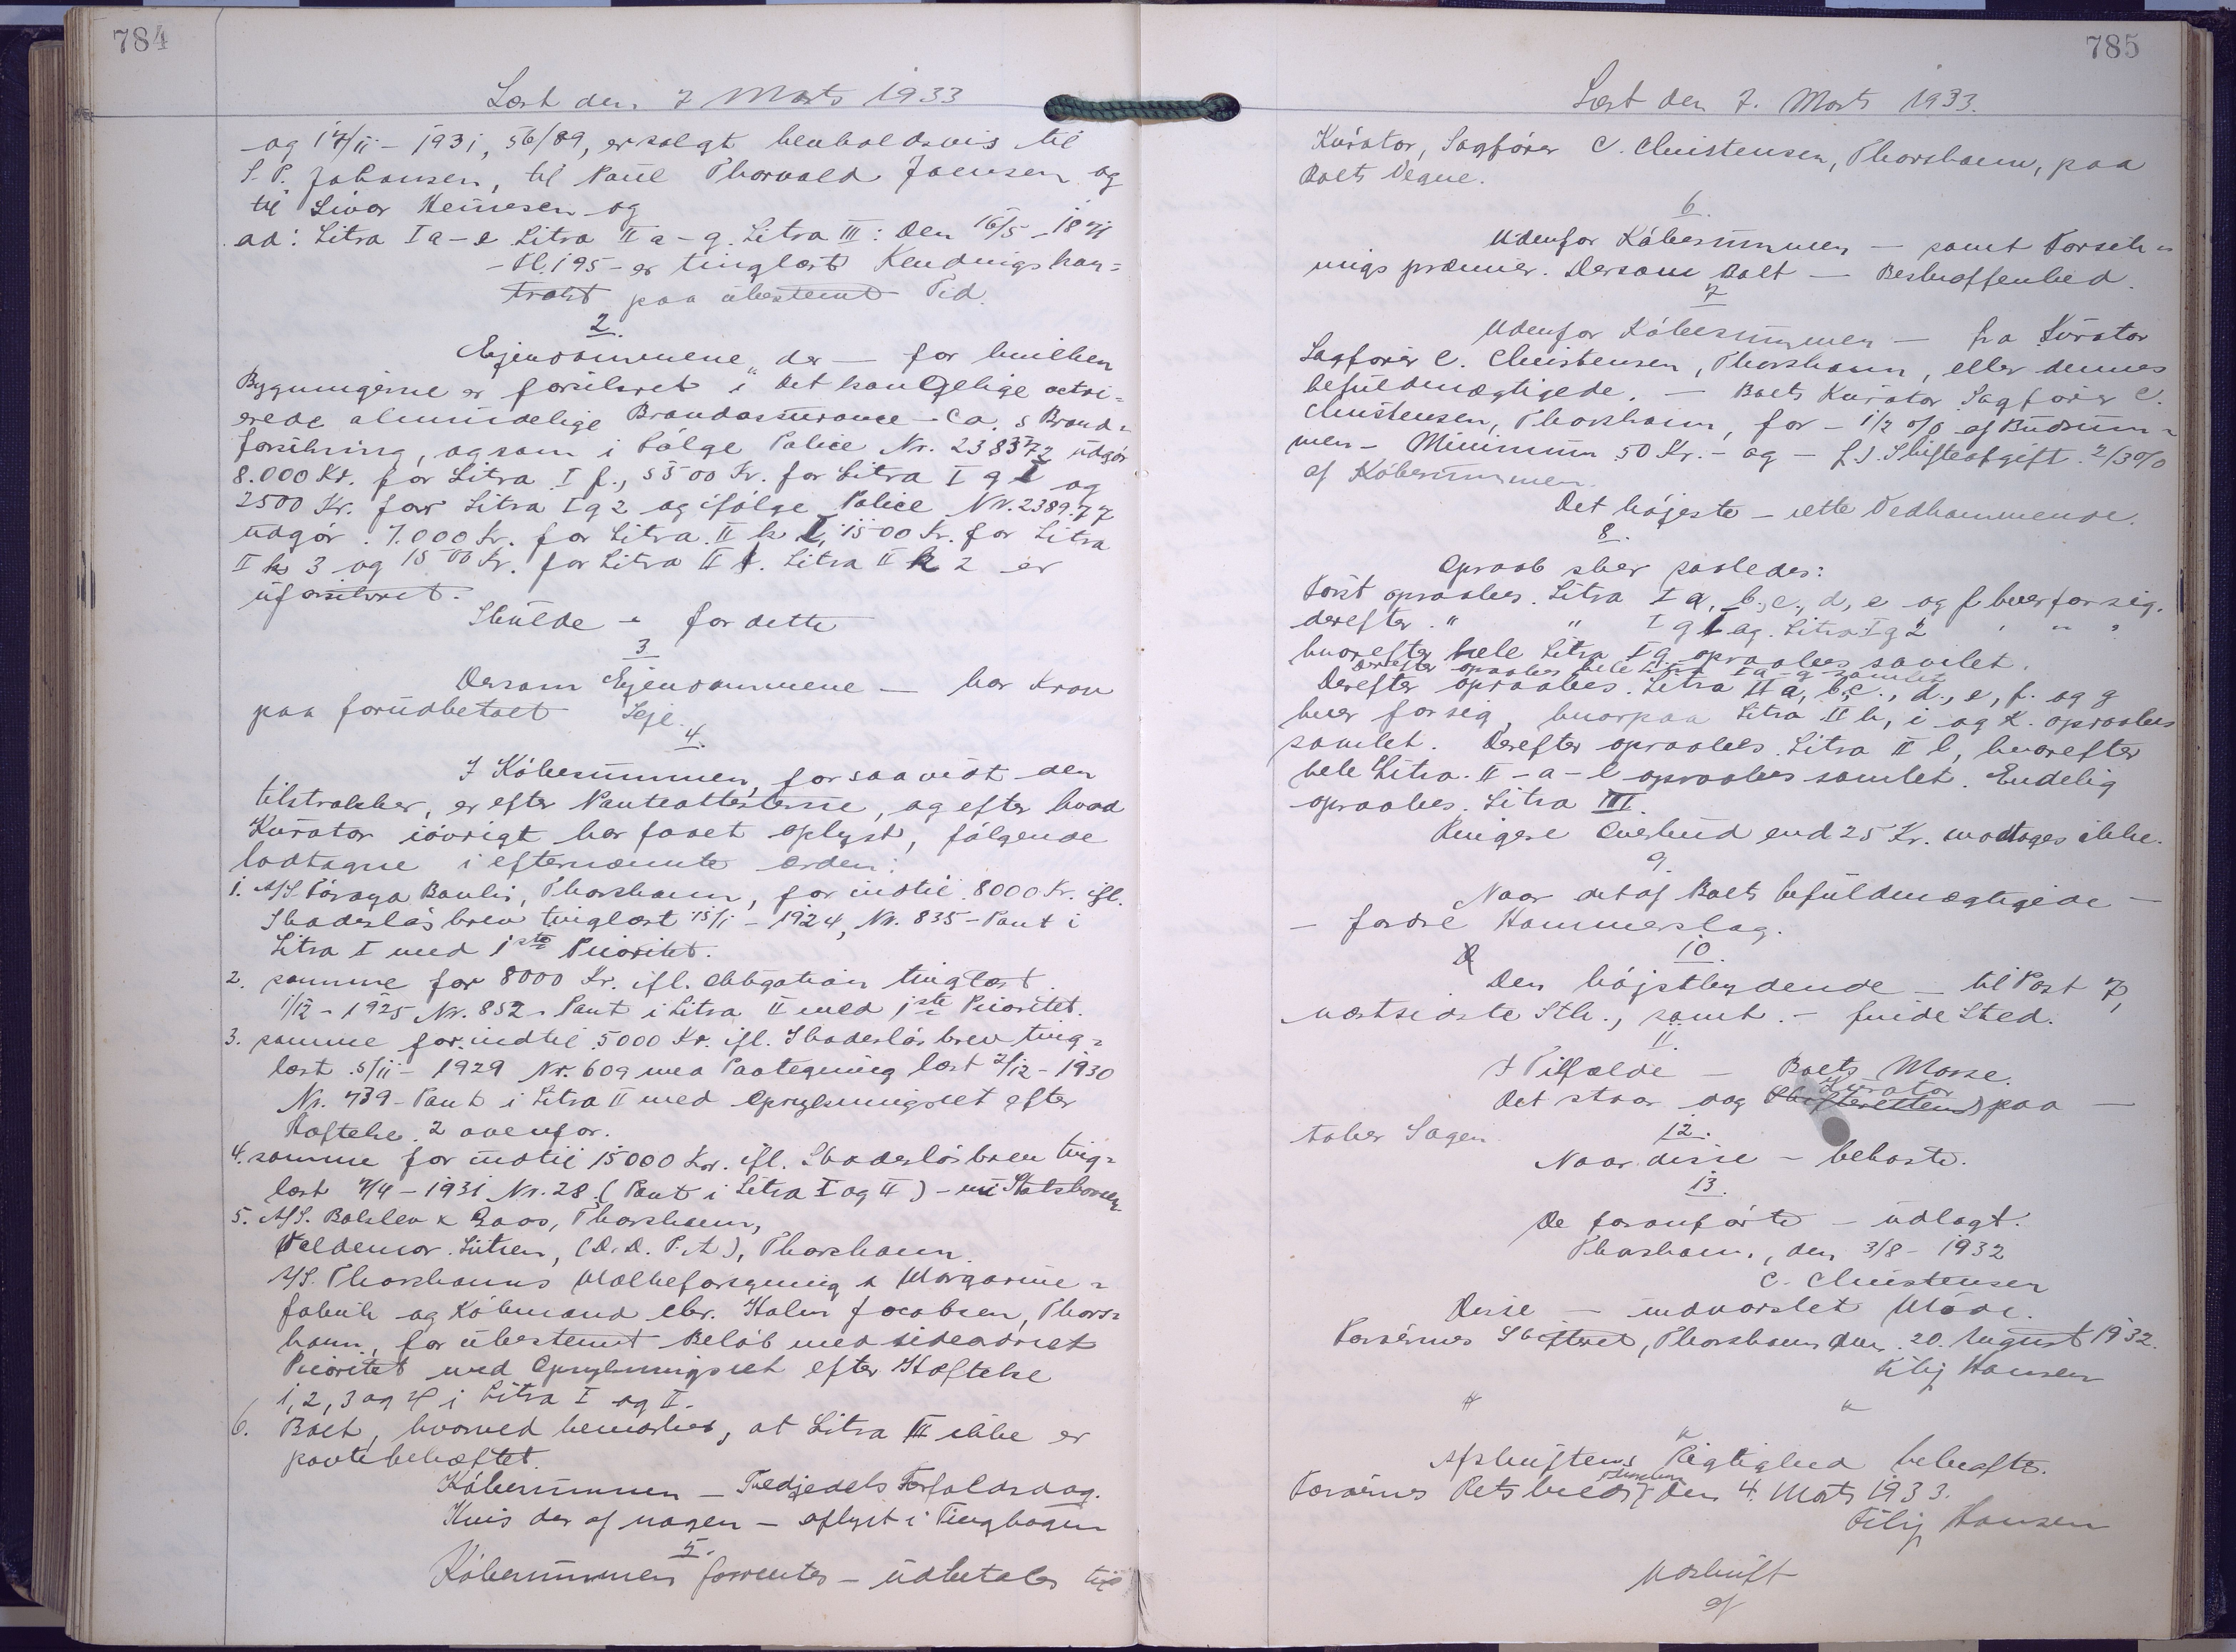 784
Læst den 7 Marts 1933
og 17/11 - 1931, 56/89, er solgt henholdsvis til
S. P. Johansen, til Paul Thorvald Joensen og
til Sivar Heinesen og
ad: Litra I a - e Litra II a - g. Litra III: Den 16/5 - 18
- Pl. 195 - er tinglæst Kendingskon=
trakt paa ubestemt Tid.
2.
Ejendommene, der — for hvilken
Bygningerne er forsikret i det kongelige octroi=
erede almindelige Brandassurance-Co.s Brand=
forsikring, og som i Følge Police Nr. 238372 udgør
8.000 Kr. for Litra I f., 5500 Kr. for Litra I g 1 og
2500 Kr. for Litra I g 2 og ifølge Police Nr. 238977
udgør 7.000 Kr. for Litra II k 1, 1500 Kr. for Litra
II k 3 og 1500 Kr. for Litra II l. Litra II k 2 er
uforsikret.
Skulde - for dette
3
Dersom Ejendommene — har Krav
paa forudbetalt Leje.
4.
I Købesummen, forsaavidt den
tilstrækker, er efter Panteattesterne, og efter hvad
Kurator iøvrigt har faaet oplyst, følgende
lodtagne i efternævnte Orden:
1. A/S. Føroya Banki, Thorshavn, for indtil 8000 Kr. ifl.
Skadesløsbrev tinglæst 15/1 - 1924, Nr. 835 - Pant i
Litra I med 1ste Prioritet.
2. samme for 8000 Kr. ifl. Obligation tinglæst
1/12 - 1925 Nr. 852 - Pant i Litra II med 1ste Prioritet.
3. samme for indtil 5000 Kr. ifl. Skadesløsbrev ting=
læst 5/11 - 1929 Nr. 609 med Paategning læst 2/12 - 1930
Nr. 739 - Pant i Litra II med Oprykningsret efter
Hæftelse 2 ovenfor.
4. samme for indtil 15000 Kr. ifl. Skadesløsbrev ting=
læst 7/4 - 1931 Nr. 28 (Pant i Litra I og II) - nu Statskassen
5. A/S. Balslev & Gaos, Thorshavn,
Valdemar Lützen, (D. D. P. A), Thorshavn
A/S. Thorshavns Mælkeforsyning & Margarine=
fabrik og Købmand Chr. Holm Jacobsen, Thors=
havn, for ubestemt Beløb med sideordnet
Prioritet med Oprykningsret efter Hæftelse
1, 2, 3 og 4 i Litra I og II.
6. Boet, hvorved bemærkes, at Litra III ikke er
pantebehæftet.
Købesummen — Trediedels Forfaldsdag.
Hvis der af nogen — aflyst i Tingbogen
5.
Købesummen forrentes — udbetales til
785
Læst den 7. Marts 1933.
Kurator, Sagfører C. Christensen, Thorshavn, paa
Boets Vegne.
6.
Udenfor Købesummen — samt Forsik=
ringspræmier. Dersom Boet — Beskaffenhed.
7
Udenfor Købesummen — fra Kurator
Sagfører C. Christensen, Thorshavn, eller dennes
befuldmægtigede. — Boets Kurator Sagfører C.
Christensen, Thorshavn, for - 1/2 o/o af Budsum=
men - Minimum 50 Kr. - og - f. J. Skifteafgift 2/3 %
af Købesummen.
Det højeste — rette Vedkommende.
8.
Opraab sker saaledes:
Først opraabes Litra I a, b, c, d, e og f hver for sig.
derefter " " I g 1 og Litra I g 2 " " "
hvorefter hele Litra I g opraabes samlet.
Derefter opraabes hele Litra I a - g samlet
Derefter opraabes Litra II a, b, c., d., e, f. og g
hver for sig, hvorpaa Litra II h, i og k. opraabes
samlet. Derefter opraabes Litra II l, hvorefter
hele Litra II - a - l opraabes samlet. Endelig
opraabes Litra III.
Ringere Overbud end 25 Kr. modtages ikke.
9.
Naar det af Boets befuldmægtigede —
— fordre Hammerslag.
10
Den højstbydende — til Post 7,
næstsidste Stk., samt - finde Sted.
11.
I Tilfælde — Boets Masse.
Kurator
Det staar dog Skifteretten paa —
taber Sagen.
12.
Naar disse - bekoste.
13.
De foranførte - udlagt.
Thorshavn, den 3/8 - 1932
C. Christensen
Disse — indvarslet Møde.
Færøernes Skifteret, Thorshavn den 20. August 1932.
Filip Hansen
" "
"
Afskriftens Rigtighed bekræftes.
Færøernes Retsbetj. den 4. Marts 1933.
Filip Hansen
Udskrift
af